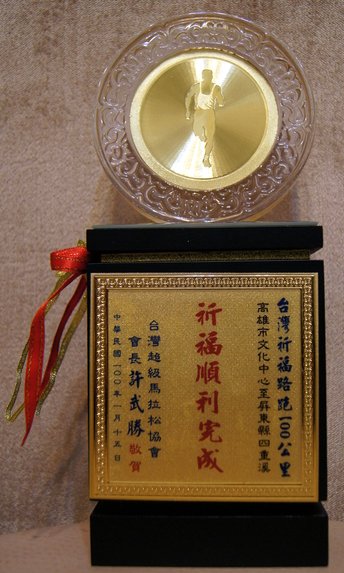 台灣祈福路跑100公里
高雄市文化中心至屏東縣四重溪
祈福順利完成
台灣超級馬拉松協會
會長許武勝敬賀
中華民國一〇〇年一月十五日